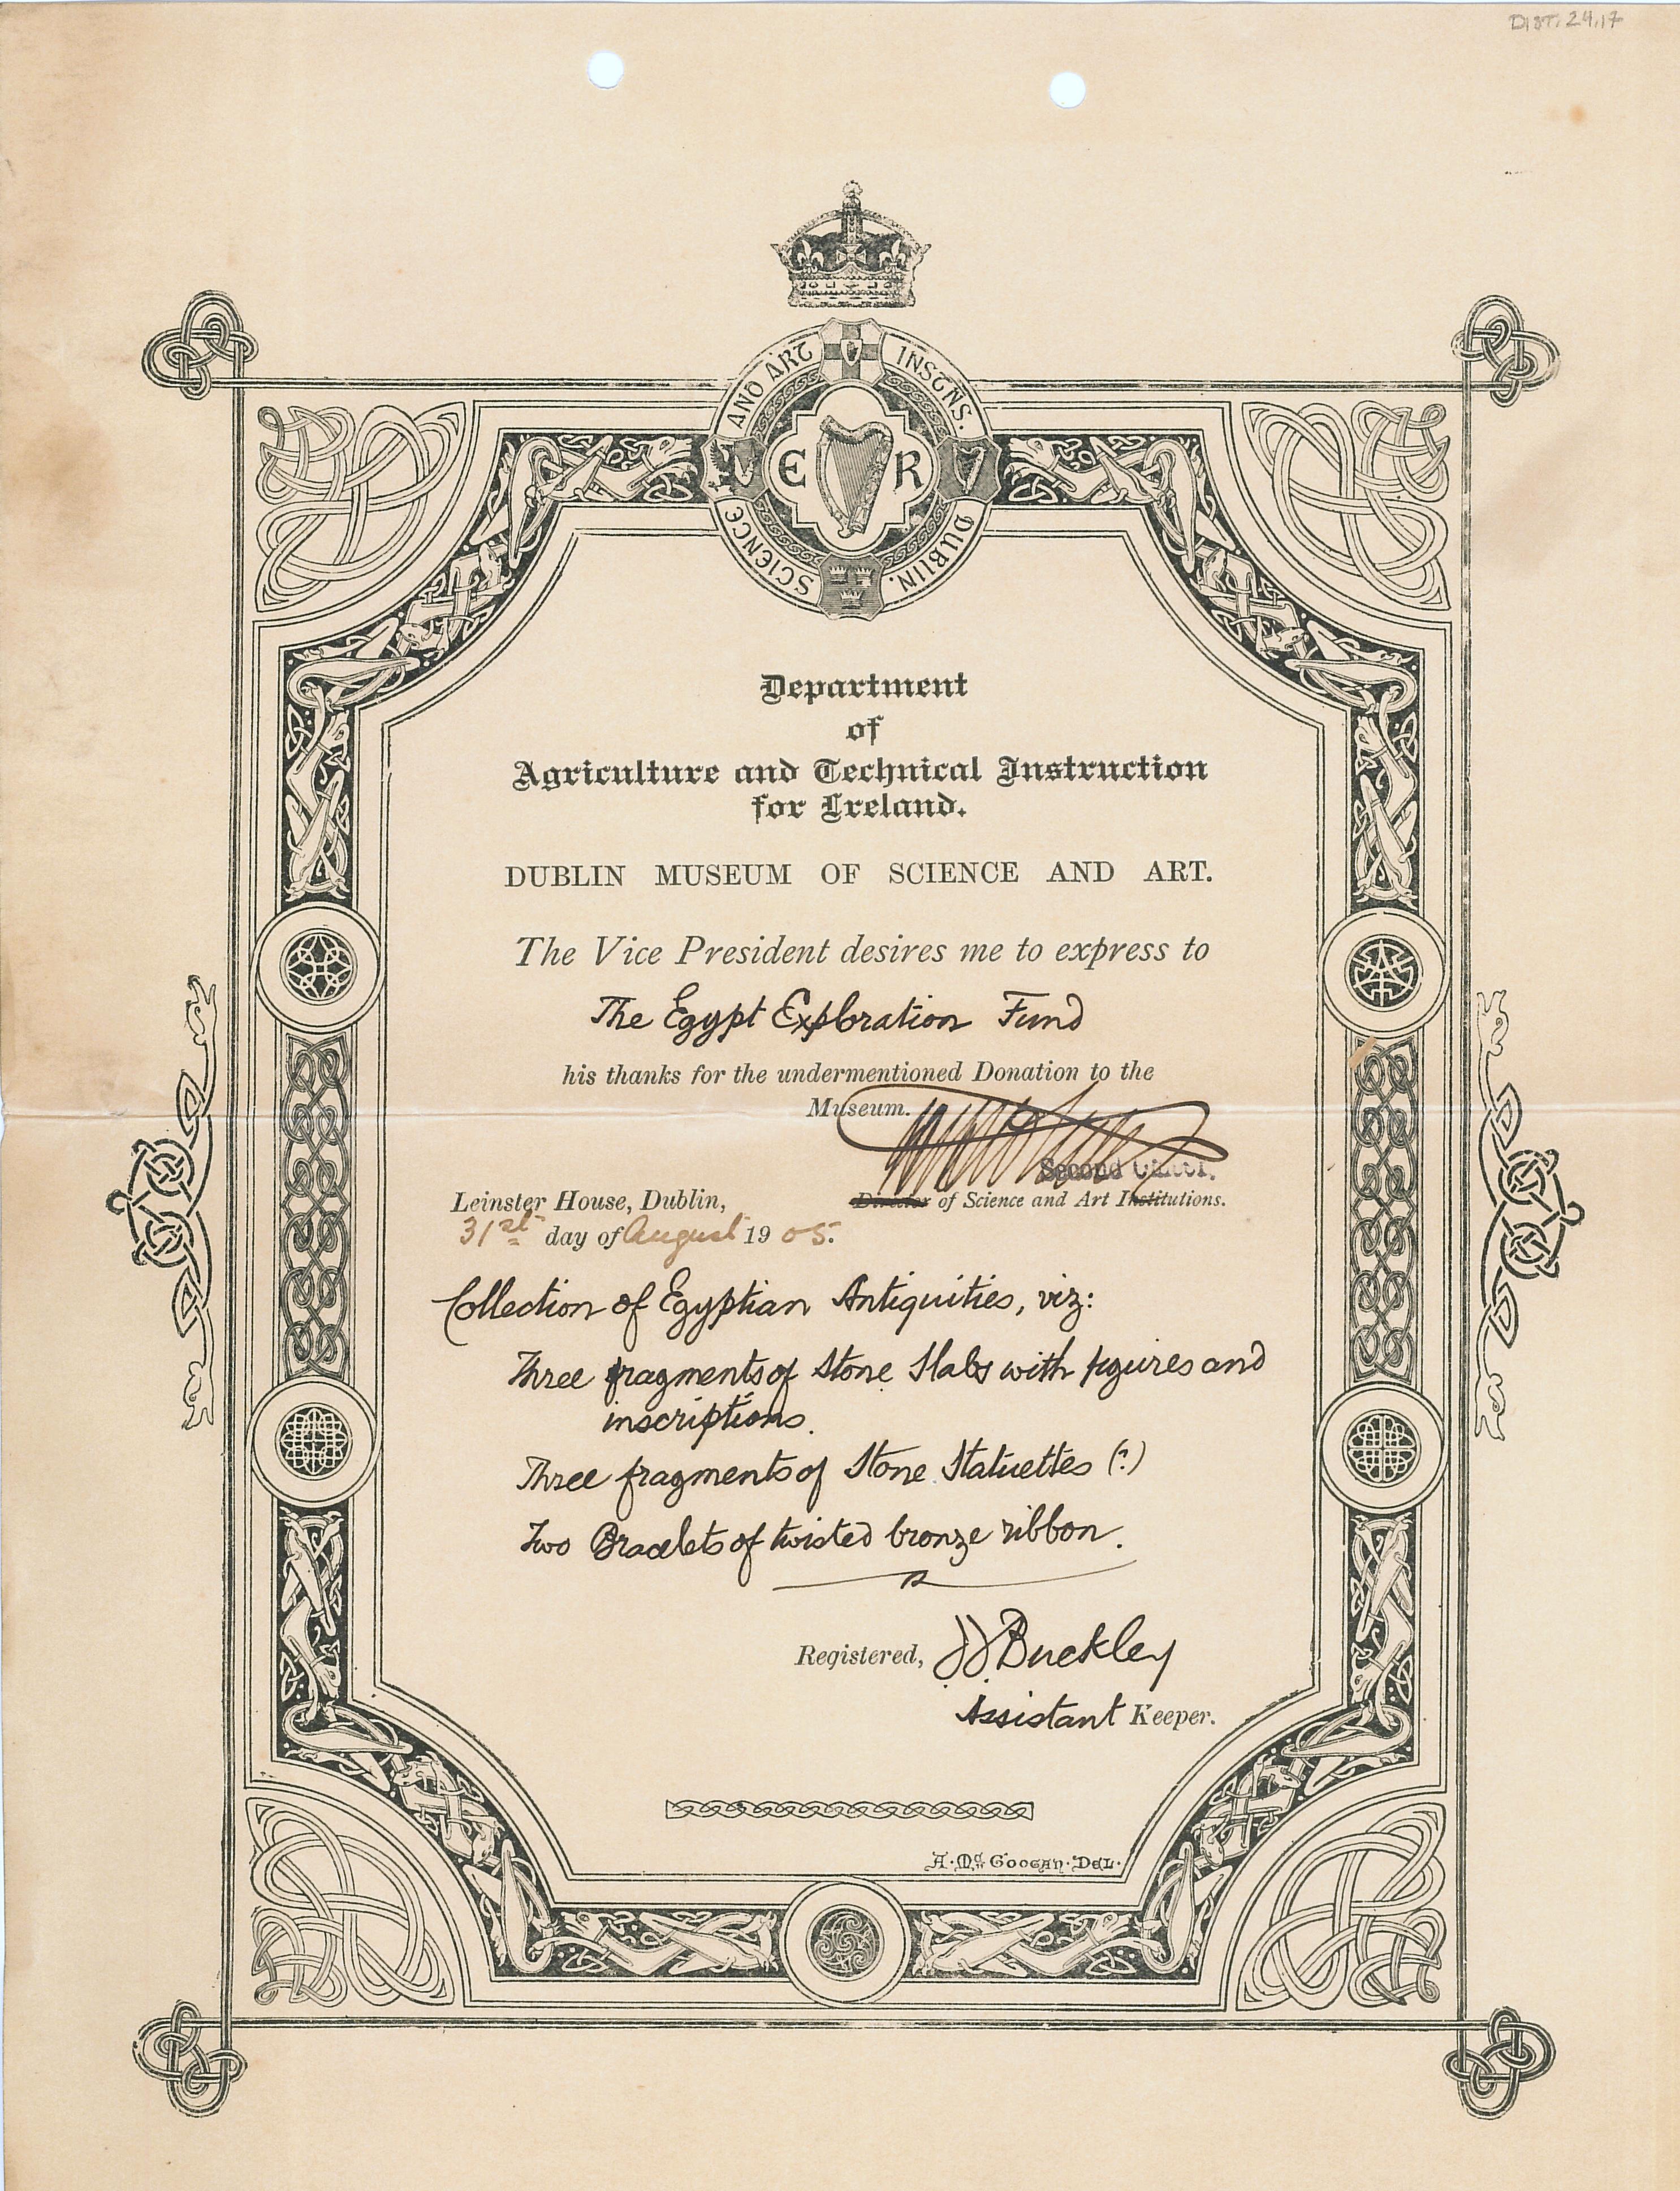 DIST. 24.17
SCIENCE AND ART INSTNS. DUBLIN.
E R
Department
of
Agriculture and Technical Instruction
for Ireland.
DUBLIN MUSEUM OF SCIENCE AND ART.
The Vice President desires me to express to
The Egypt Exploration Fund
his thanks for the undermentioned Donation to the
Museum.
Second
Leinster House, Dublin,
Director of Science and Art Institutions.
31st day of August 1905.
Collection of Egyptian Antiquities, viz:
Three fragments of Stone Slabs with figures and
inscriptions.
Three fragments of Stone Statuettes (?)
Two Bracelets of twisted bronze ribbon.
Registered, JJ Buckley
Assistant Keeper.
A. Mc Googan. Del.